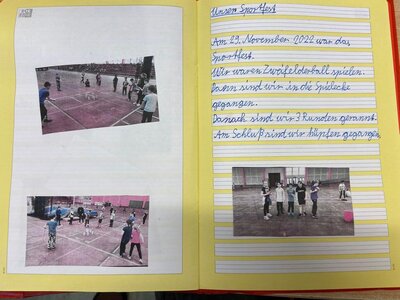 Unser Sportfest
Am 29. November 2022 war das
Sportfest.
Wir waren Zwöfelderball spielen.
Dann sind wir in die Spielecke
gegangen.
Danach sind wir 3 Runden gerannt.
Am Schluß sind wir hüpfen gegangen.